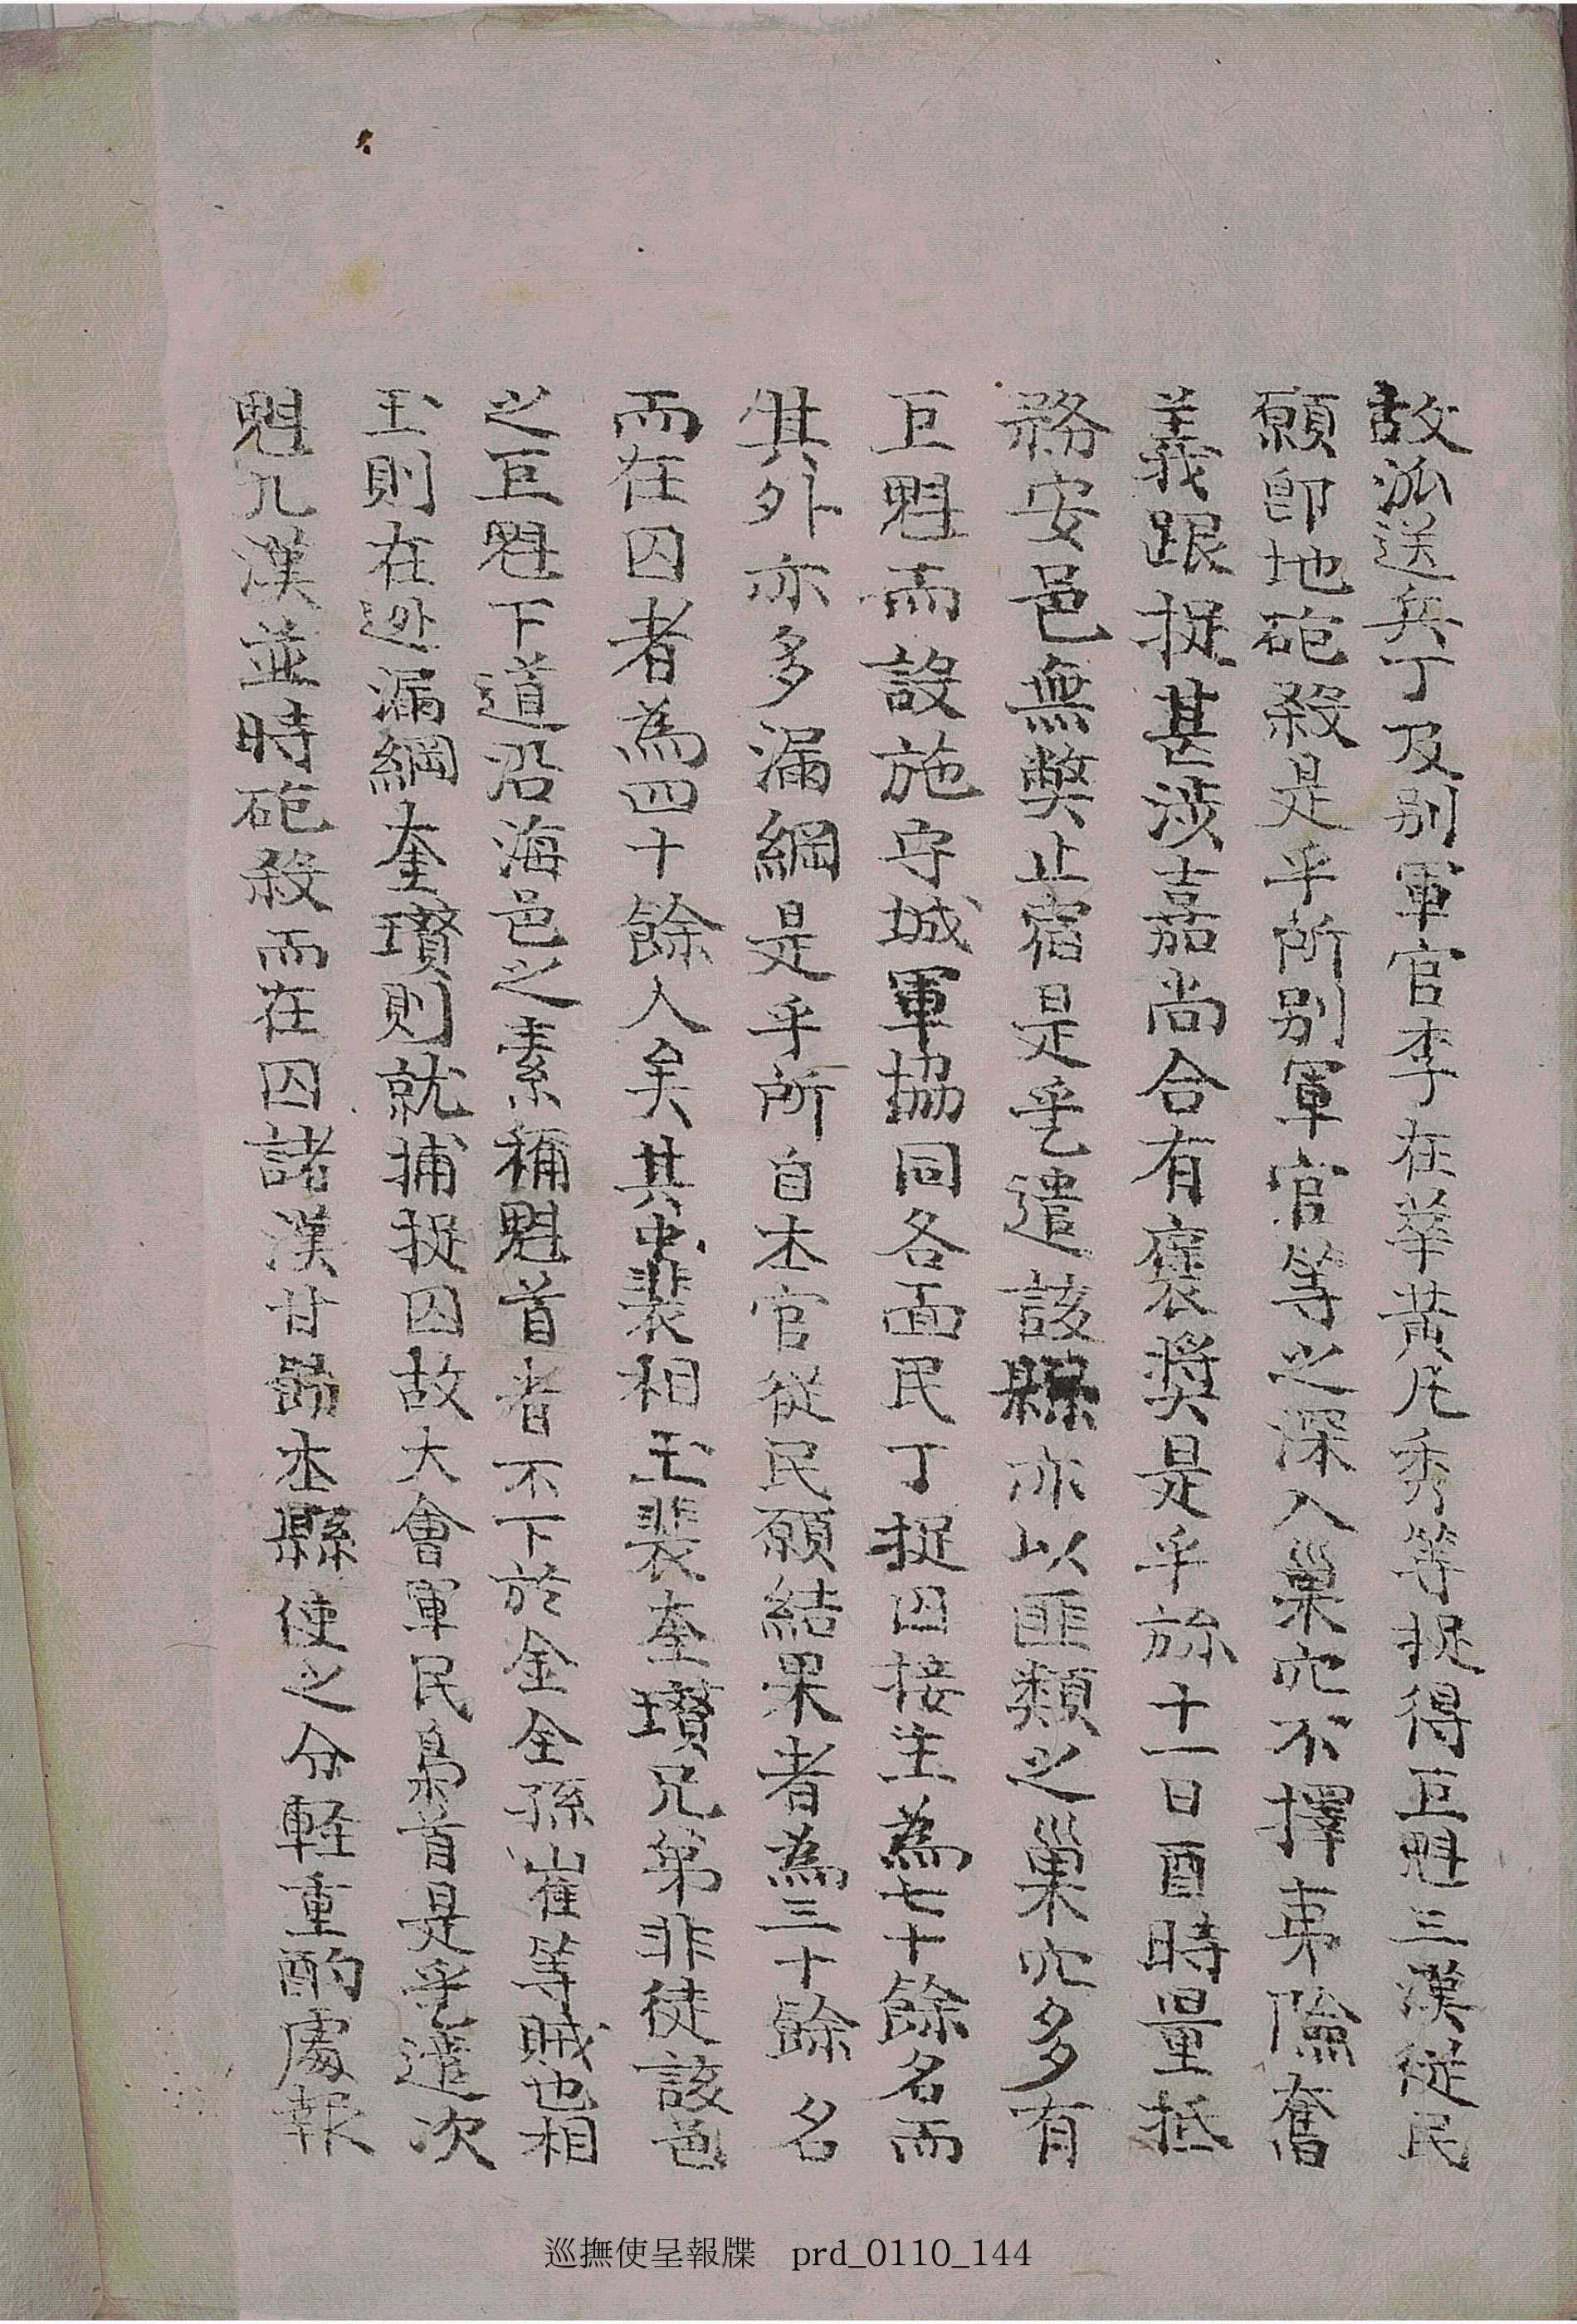 故派送兵丁及別軍官李在華黃凡秀等捉得巨魁三漢從民
願卽地砲殺是乎所別軍官等之深入巢穴不擇夷險奮
義跟捉甚涉嘉尚合有褒奬是乎旀十一日酉時量抵
務安邑無弊止宿是乎遣該縣亦以匪類之巢穴多有
巨魁而設施守城軍協同各面民丁捉囚接主為七十餘名而
其外亦多漏網是乎所自本官從民願結果者為三十餘名
而在囚者為四十餘人矣其中裴相玉裴奎瓚兄弟非徒該邑
之巨魁下道沿海邑之素稱魁首者不下於金全孫崔等賊也相
玉則在逃漏網奎瓚則就捕捉囚故大會軍民梟首是乎遣次
魁九漢並時砲殺而在囚諸漢甘飭本縣使之分輕重酌處報
巡撫使呈報牒 prd_0110_144